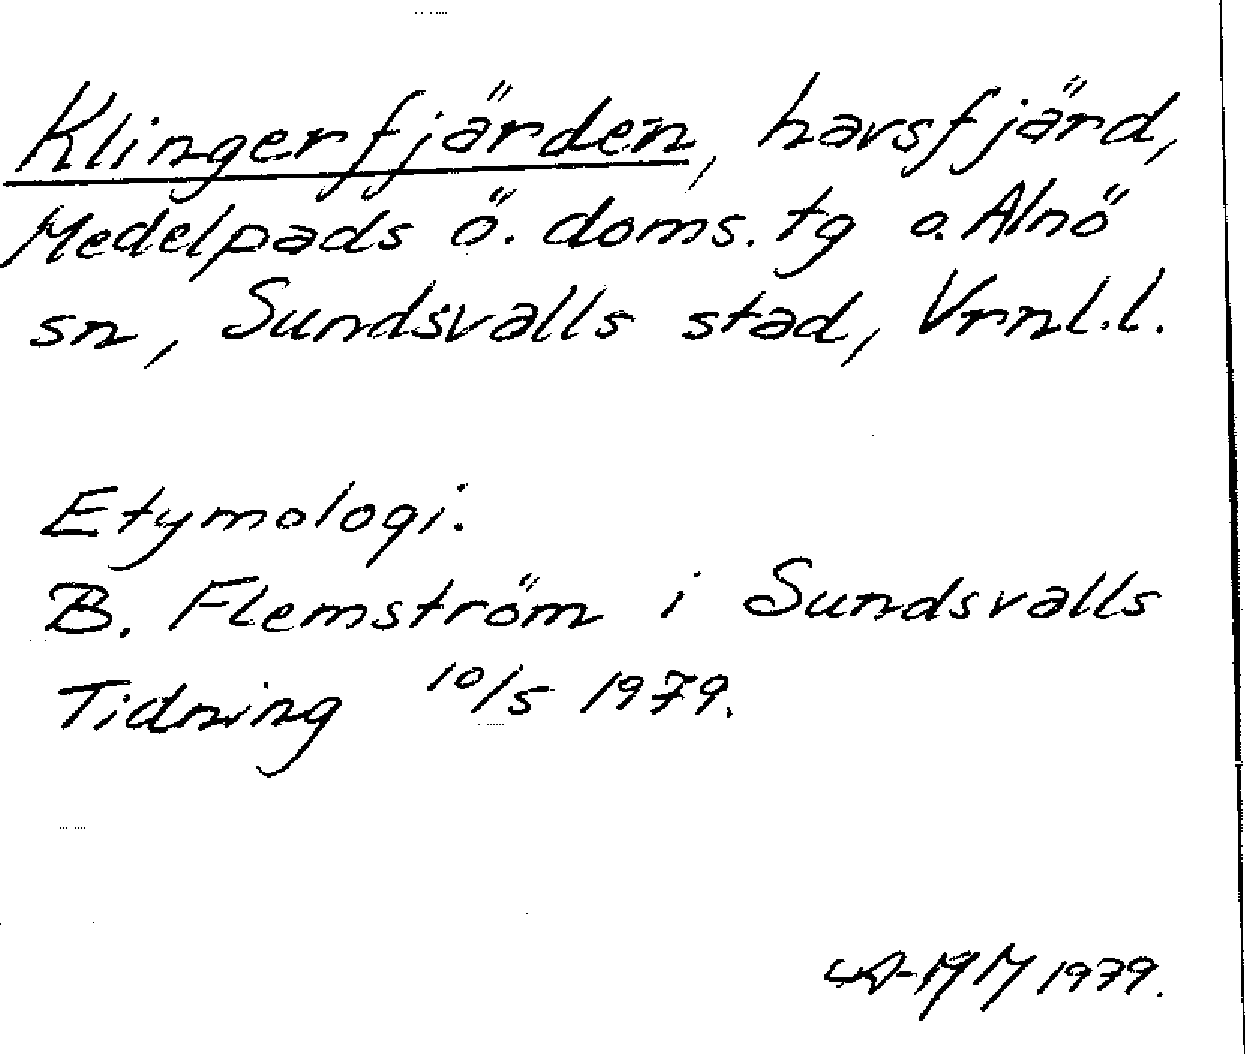 Klingerfjärden, havsfjärd,
Medelpads ö. doms. tg o. Alnö
sn, Sundsvalls stad, Vrnl.l.
Etymologi.
B. Flemström i Sundsvalls
Tidning 10/5 1979.
1979.